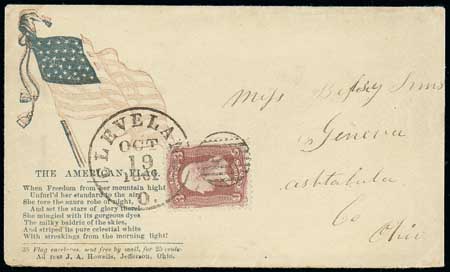 CLEVELA
OCT
19
1861
O.
3 3
THE AMERICAN FLAG.
When Freedom from her mountain hight
Unfurl'd her standard to the air,
She tore the azure robe of night,
And set the stars of glory there!
She mingled with its gorgeous dyes
The milky baldric of the skies,
And striped its pure celestial white
With streakings from the morning light!
25 Flag envelopes, sent free by mail, for 25 cents.
Address J. A. Howells, Jefferson, Ohio.
Miss Betsey Sims
Geneva
Ashtabula
Co
Ohio